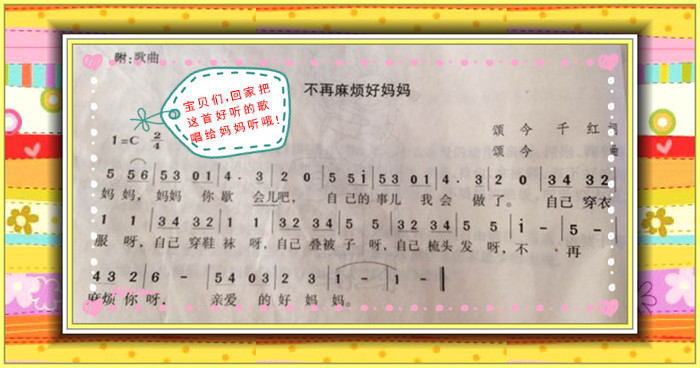 附:歌曲
宝贝们,回家把
这首好听的歌
唱给妈妈听哦!
不再麻烦好妈妈
1=C 2/4
颂 今 千 红 词
颂 今 曲
5 56 | 53 01 | 4. 3 | 2 0 | 5 5i | 53 01 | 4. 3 | 2 0 | 34 32 |
妈 妈, 妈妈 你 歇 会儿吧, 自 己的 事儿 我 会 做 了。 自己 穿衣
1 1 | 34 32 | 1 1 | 32 34 | 5 5 | 32 34 | 5 5 | i - | 5 - |
服 呀, 自己 穿鞋 袜 呀, 自己 叠被 子 呀, 自己 梳头 发 呀, 不 再
43 2 | 6 - | 54 03 | 2 3 | 1 - | 1 - ‖
麻烦 你 呀, 亲爱 的 好 妈 妈。